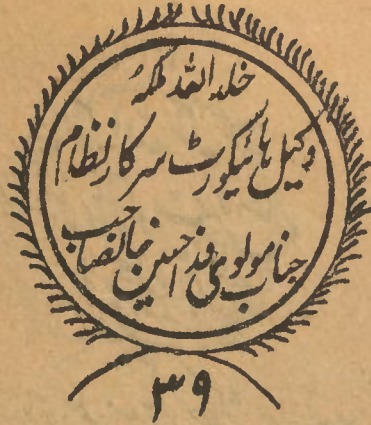 خلد اللہ ملکہ
وکیل ہائیکورٹ سرکار نظام
جناب مولوی فدا حسین خانصاحب
۳۹